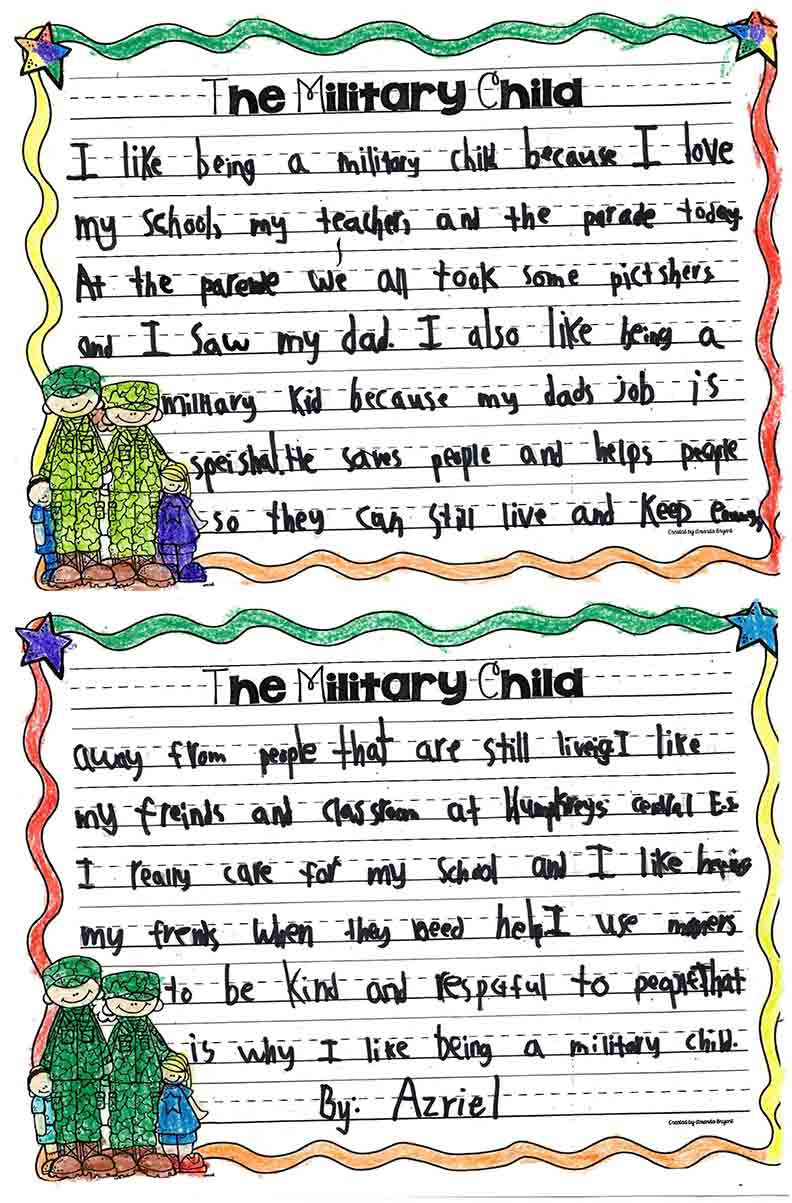 The Military Child
I like being a military child because I love
my school, my teacher, and the parade today.
At the parade we all took some pictshers
and I saw my dad. I also like being a
military kid because my dads job is
speishal. He saves people and helps people
so they can still live and keep
Created by Amanda Bryant
The Military Child
away from people that are still liveig. I like
my freinds and classroom at Humphreys central E.s
I really care for my school and I like
my frends when they need help. I use maners
to be kind and respctful to people That
is why I like being a military child.
By: Azriel
Created by Amanda Bryant